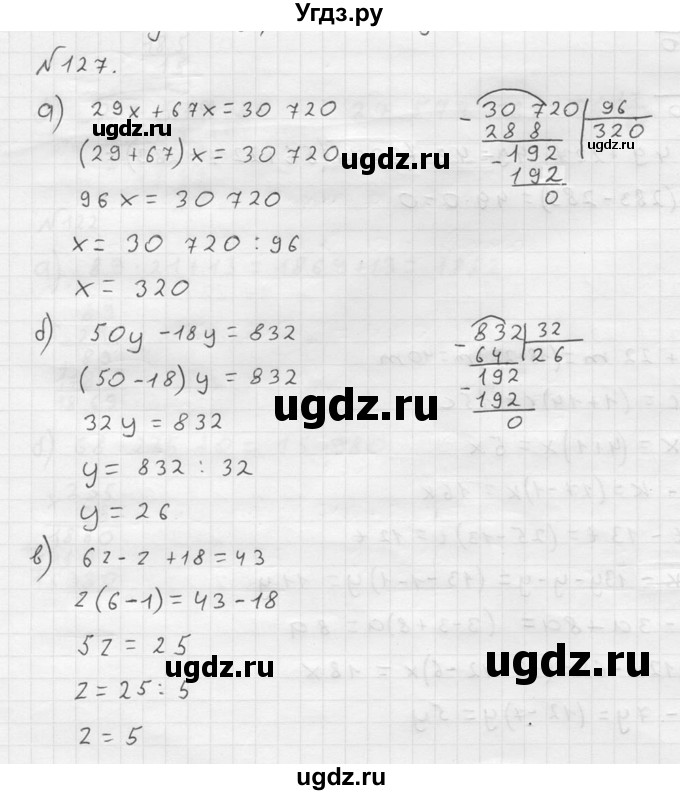 Угдз.ру
№127.
а) 29x + 67x = 30 720
ugdz.ru
(29+67)x = 30 720
ugdz.ru
96x = 30 720
x = 30 720 : 96
x = 320
- 30 720 | 96
288 | 320
ugdz.ru
- 192
192
0
б) 50y - 18y = 832
(50-18)y = 832
ugdz.ru
32y = 832
y = 832 : 32
y = 26
- 832 | 32
64 | 26
- 192
192
0
в) 6z - z + 18 = 43
z(6-1) = 43-18
5z = 25
ugdz.ru
ugdz.ru
z = 25 : 5
z = 5
ugdz.ru